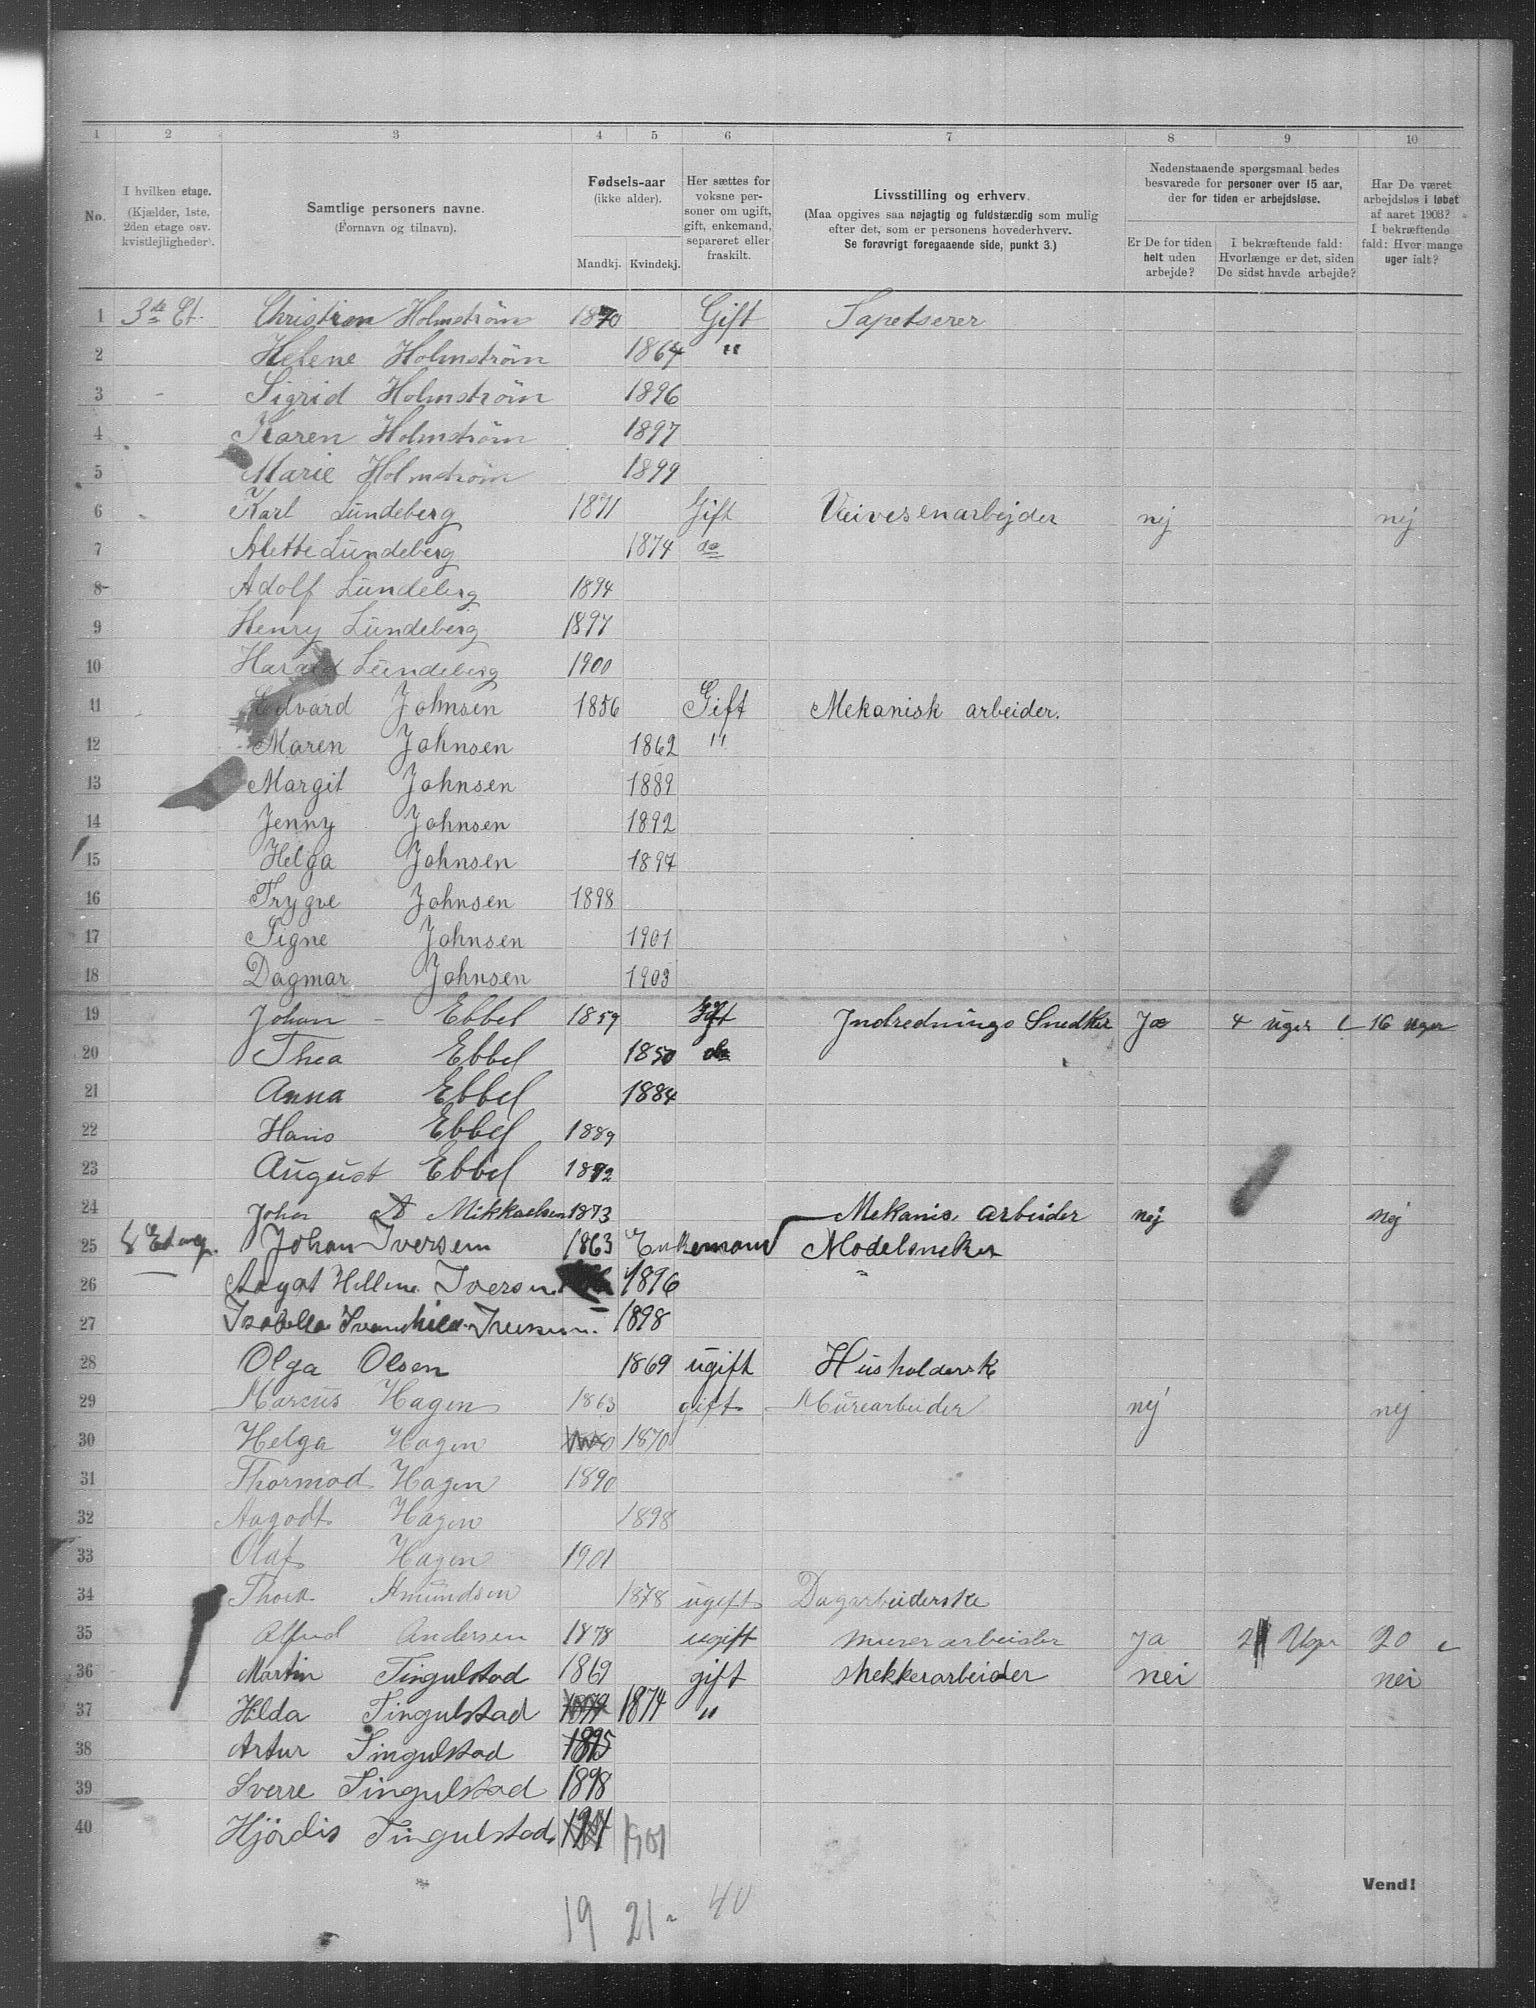 1 2 3 4 5 6 7 8 9 10
No.
I hvilken etage.
(Kjælder, 1ste,
2den etage osv.
kvistlejligheder).
Samtlige personers navne.
(Fornavn og tilnavn).
Fødsels-aar
(ikke alder).
Mandkj. Kvindekj.
Her sættes for
voksne per-
soner om ugift,
gift, enkemand,
separeret eller
fraskilt.
Livsstilling og erhverv.
(Maa opgives saa nøjagtig og fuldstændig som mulig
efter det, som er personens hovederhverv.
Se forøvrigt foregaaende side, punkt 3.)
Nedenstaaende spørgsmaal bedes
besvarede for personer over 15 aar,
der for tiden er arbejdsløse.
Er De for tiden
helt uden
arbejde?
I bekræftende fald:
Hvorlænge er det, siden
De sidst havde arbejde?
Har De været
arbejdsløs i løbet
af aaret 1903?
I bekræftende
fald: Hvor mange
uger ialt?
1 3de Et. Christian Holmstrøm 1870 Gift Tapetserer
2 Helene Holmstrøm 1864 "
3 Sigrid Holmstrøm 1896
4 Karen Holmstrøm 1897
5 Marie Holmstrøm 1899
6 Karl Lundeberg 1871 Gift Veivesenarbejder nej nej
7 Alette Lundeberg 1874 do
8 Adolf Lundeberg 1894
9 Henry Lundeberg 1897
10 Harald Lundeberg 1900
11 Edvard Johnsen 1856 Gift Mekanisk arbeider.
12 Maren Johnsen 1862 "
13 Margit Johnsen 1889
14 Jenny Johnsen 1892
15 Helga Johnsen 1897
16 Trygve Johnsen 1898
17 Signe Johnsen 1901
18 Dagmar Johnsen 1903
19 Johan Ebbel 1859 Gift Indrednings Snedker Ja 4 uger 16 uger
20 Thea Ebbel 1850 do
21 Anna Ebbel 1884
22 Hans Ebbel 1889
23 August Ebbel 1892
24 Johan Mikkaelsen 1873 Mekanis. arbeider nej nej
25 Johan Iversen 1863 Enkemand Modelsneker
26 Aagot Hellene Iversen 1896 "
27 Isabella 1898
28 Olga Olsen 1869 ugift Husholderske
29 Marcus Hagen 1863 gift Murearbeider nej nej
30 Helga Hagen 1870
31 Thormod Hagen 1890
32 Aagodt Hagen 1898
33 Olaf Hagen 1901
34 Thora Amundsen 1878 ugift Dagarbeiderske
35 Alfred Andersen 1878 ugift murerarbeider Ja 20
36 Martin Tingulstad 1869 gift shekkerarbeider nei nei
37 Hilda Tingulstad 1874 "
38 Artur Tingulstad 1895
39 Sverre Tingulstad 1898
40 Hjördis Tingulstad 1901
Vend!
19 21 40